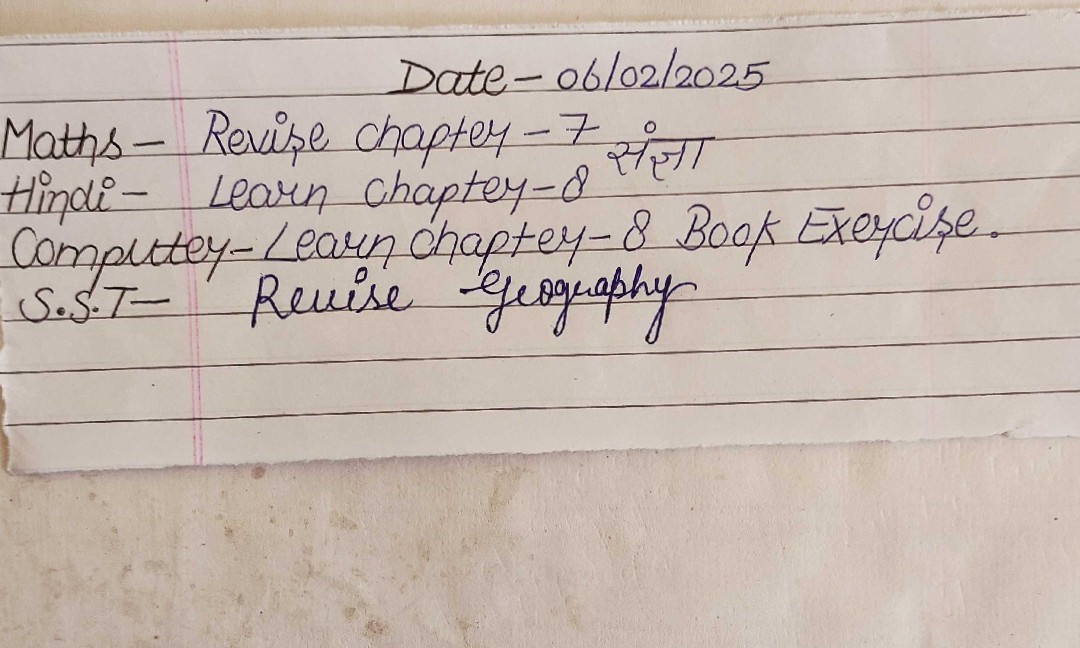 Date - 06/02/2025
Maths - Revise chapter - 7
Hindi - Learn chapter - 8 संज्ञा
Computer - Learn chapter - 8 Book Exercise.
S.S.T - Revise Geography